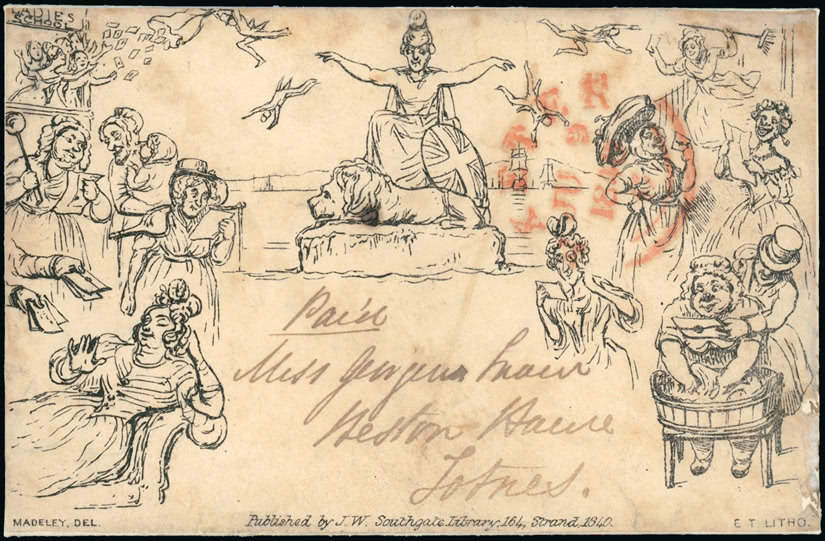 LADIES
SCHOOL
Paid
Miss Georgena
Weston House
Totnes.
MADELEY, DEL.
Published by J.W. Southgate Library, 164, Strand, 1840.
E T LITHO.